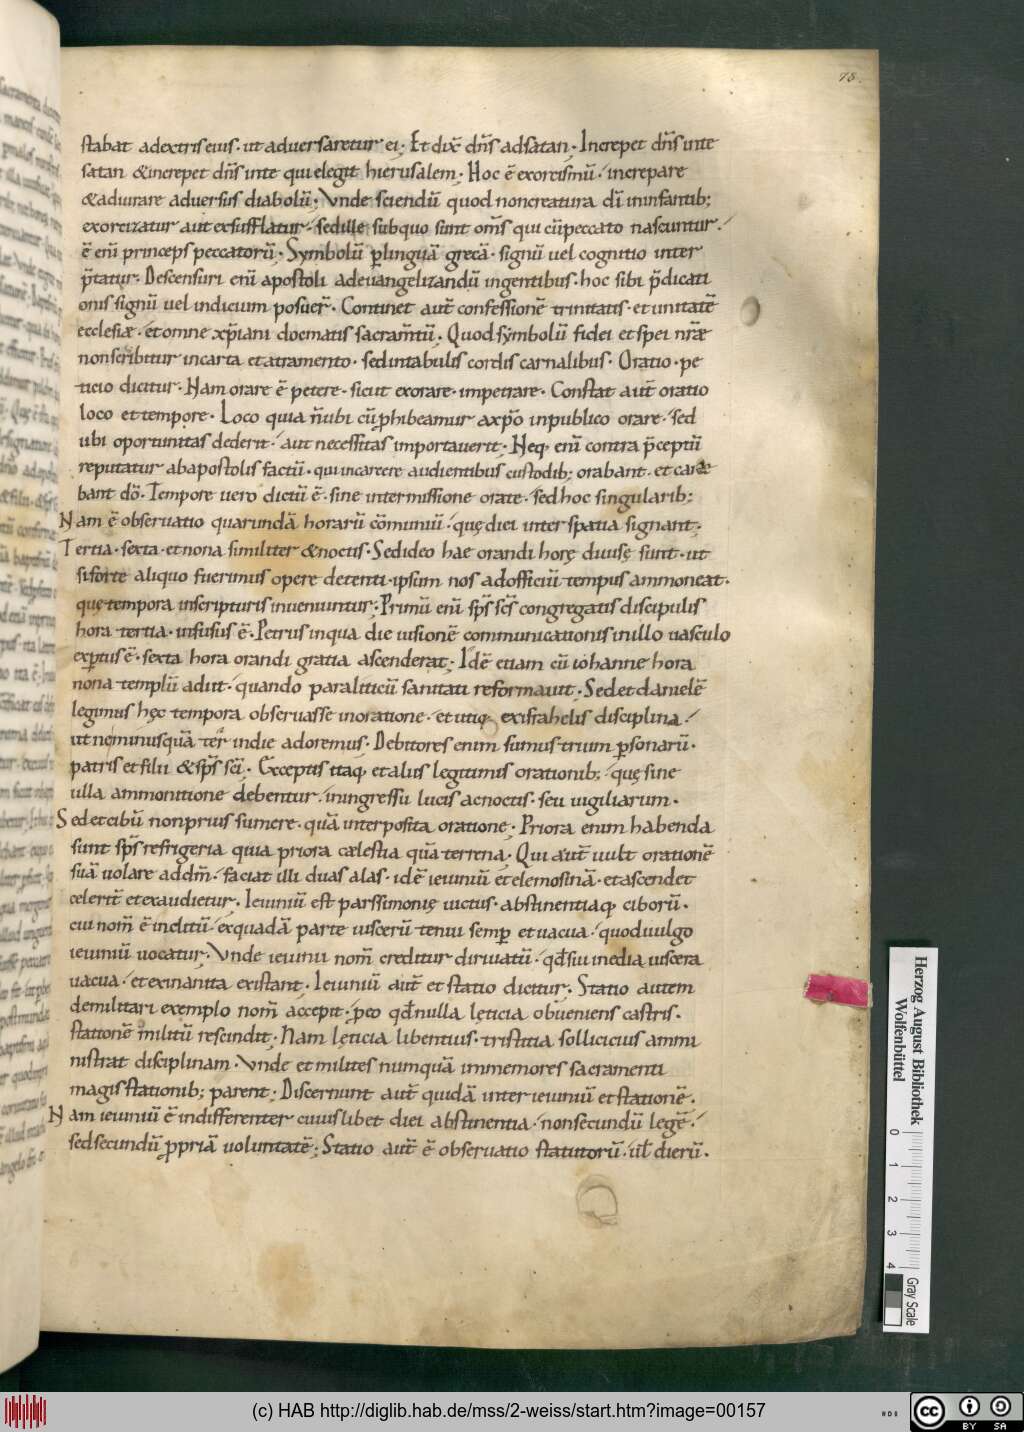 75.
stabat adextris eius · ut aduersaretur ei; Et dix̄ dn̄s adsatan · Increpet dn̄s inte
satan &increpet dn̄s inte qui elegit hierusalem; Hoc ē exorcismū · increpare
&adiurare aduersus diabolū; Vnde sciendū quod noncreatura dī ininfantib;
exorcizatur aut exsufflatur · sedille subquo sunt om̄s qui cūpeccato nascuntur ·
ē enī princeps peccatorū; Symbolū p̱linguā grecā · signū uel cognitio inter
p̄tatur · Descensuri enī apostoli adeuangelizandū ingentibus · hoc sibi p̄dicati
onis signū uel indicium posuer̄ · Continet aut̄ confessionē trinitatis · et unitatē
ecclesiæ · et omne xp̄iani docmatis sacram̄tū; Quod symbolū fidei et spei nr̄æ
nonscribitur incarta et atramento · sedintabulis cordis carnalibus · Oratio · pe
ticio dicitur · Nam orare ē petere · sicut exorare · impetrare · Constat aut̄ oratio
loco et tempore · Loco quia n̄ubi cū p̱hibeamur axp̄o inpublico orare · sed
ubi oportunitas dederit · aut necessitas importauerit; Neq; enī contra p̄ceptū
reputatur abapostolis factū · qui incarcere audientibus custodib; orabant · et cante
bant dō · Tempore uero dictū ē · sine intermissione orate · sed hoc singularib;
Nam ē obseruatio quarundā horarū cōmuniū · quę diei interspatia signant;
Tertia · sexta · et nona similiter &noctis · Sed ideo hae orandi horę diuisę sunt · ut
siforte aliquo fuerimus opere detenti · ipsum nos adofficiū tempus ammoneat ·
quę tempora inscripturis inueniuntur; Primū enī sp̄s sc̄s congregatis discipulis
hora tertia · infusus ē · Petrus inqua die uisionē communicationis inillo uasculo
exp̱tus ē · sexta hora orandi gratia ascenderat; Idē etiam cū iohanne hora
nona templū adiit · quando paraliticū sanitati reformauit · Sed et danielē
legimus hęc tempora obseruasse inoratione · et utiq; exisrahelis disciplina ·
ut neminusquā ter indie adoremus · Debitores enim sumus trium p̱sonarū ·
patris et filii &sp̄s sc̄i · Exceptis itaq; et aliis legitimis orationib; · quę sine
ulla ammonitione debentur · iningressu lucis acnoctis · seu uigiliarum ·
Sed et cibū nonprius sumere · quā interposita oratione; Priora enim habenda
sunt sp̄s refrigeria quia priora cælestia quā terrena; Qui aut̄ uult orationē
suā uolare addm̄ · faciat illi duas alas · idē ieiuniū et elemosinā · et ascendet
celerit̄ et exaudietur · Ieiuniū est parssimonię uictus · abstinentiaq; ciborū ·
cui nom̄ ē inclitū · exquadā parte uiscerū tenui semp̱ et uacua · quod uulgo
ieiuniū uocatur · Vnde ieiunii nom̄ creditur diriuatū · qđ sui inedia uiscera
uacua · et exinanita existant · Ieiuniū aut̄ et statio dicitur; Statio autem
demilitari exemplo nom̄ accepit · p̱eo qđ nulla lęticia obueniens castris ·
stationē militū rescindit; Nam lęticia libentius · tristitia sollicicius ammi
nistrat disciplinam · Vnde et milites numquā immemores sacramenti
magis stationib; parent; Discernunt aut̄ quidā inter ieiuniū et stationē ·
Nam ieiuniū ē indifferenter cuiuslibet diei abstinentia · nonsecundū legē ·
sed secundū p̱priā uoluntatē; Statio aut̄ ē obseruatio statutorū · ul̄ dierū ·
Herzog August Bibliothek
Wolfenbüttel
0 1 2 3 4
Gray Scale
(c) HAB http://diglib.hab.de/mss/2-weiss/start.htm?image=00157
HAB
CC BY SA